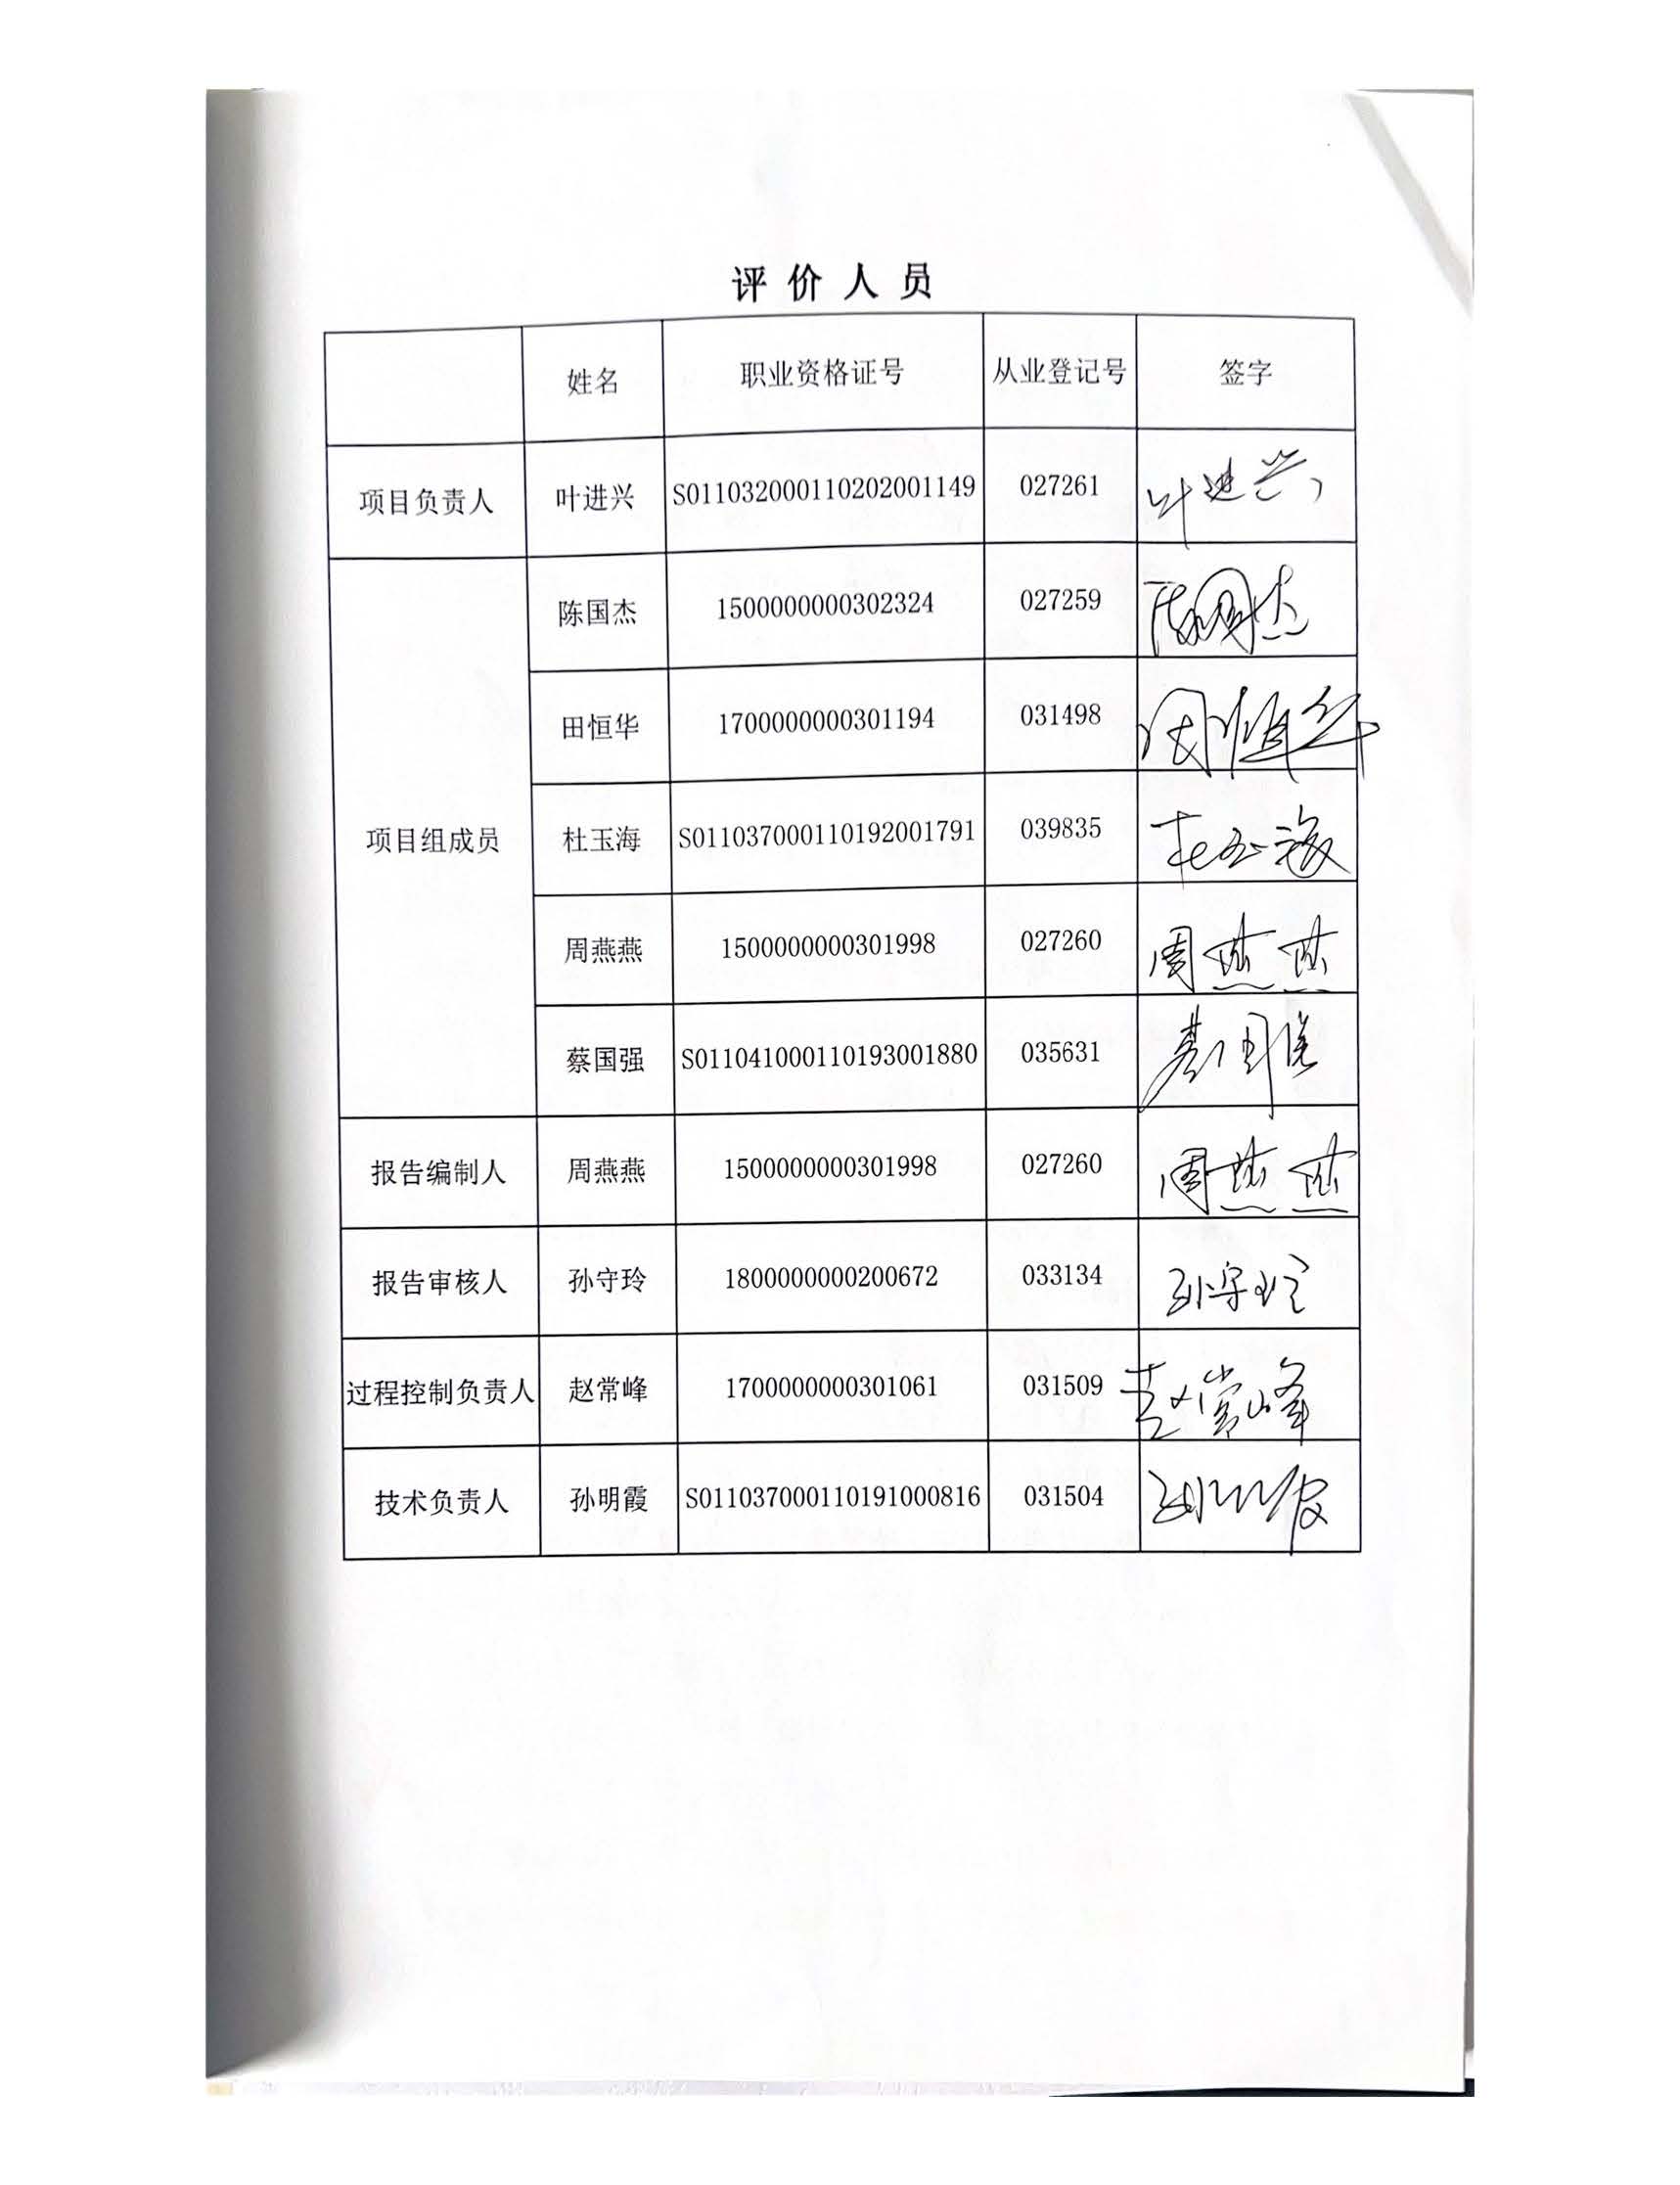 评价人员
姓名 职业资格证号 从业登记号 签字
项目负责人 叶进兴 S011032000110202001149 027261 叶进兴
项目组成员 陈国杰 1500000000302324 027259 陈国杰
田恒华 1700000000301194 031498 田恒华
杜玉海 S011037000110192001791 039835 杜玉海
周燕燕 1500000000301998 027260 周燕燕
蔡国强 S011041000110193001880 035631 蔡国强
报告编制人 周燕燕 1500000000301998 027260 周燕燕
报告审核人 孙守玲 1800000000200672 033134 孙守玲
过程控制负责人 赵常峰 1700000000301061 031509 赵常峰
技术负责人 孙明霞 S011037000110191000816 031504 孙明霞